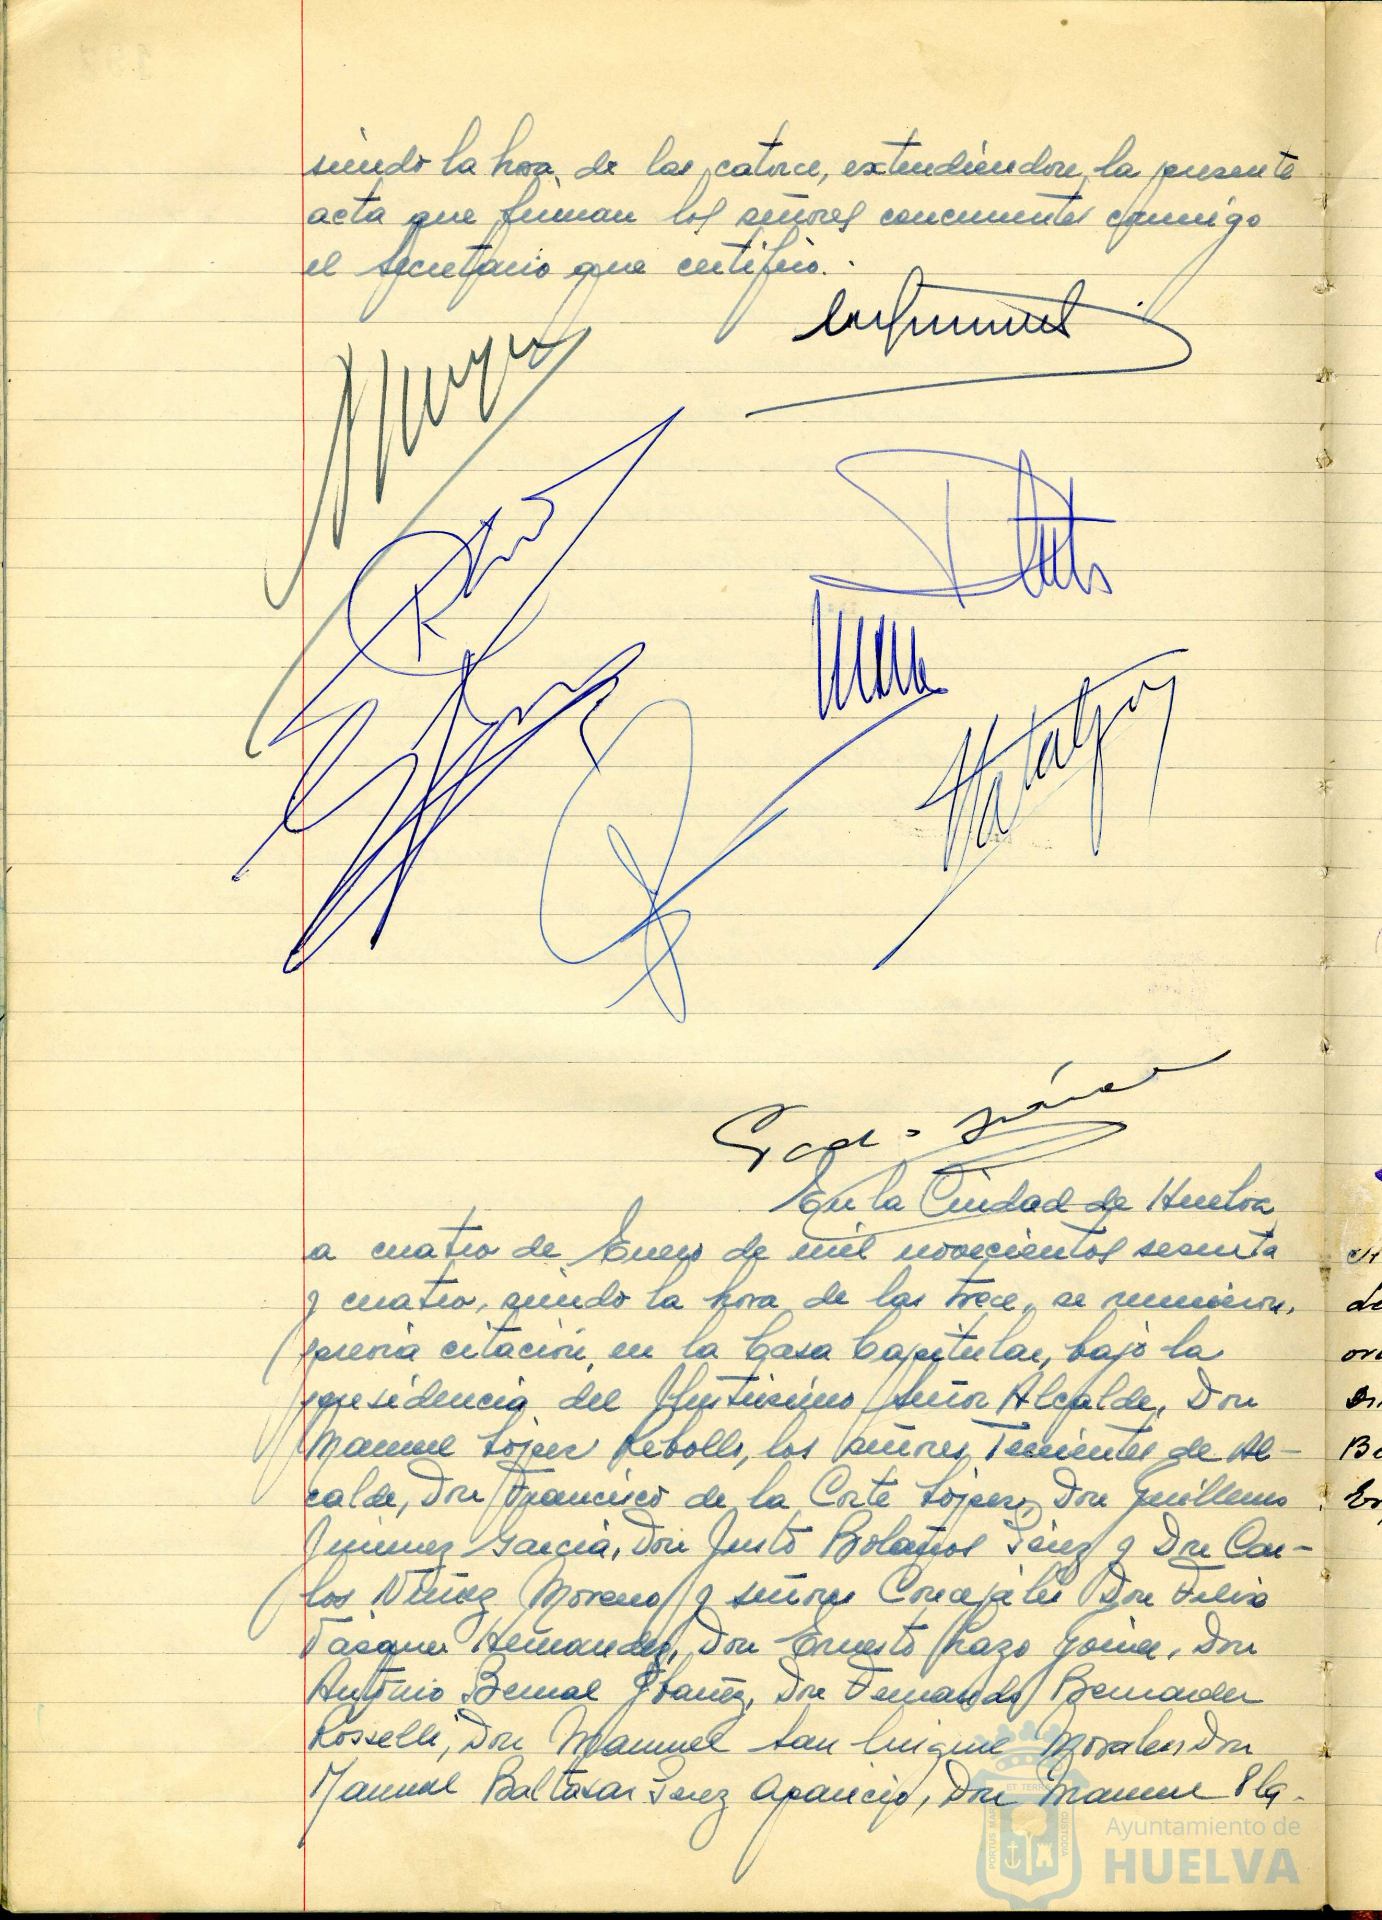 siendo la hora de las catorce, extendiendose la presente
acta que firman los señores concurrentes conmigo
el Secretario que certifico.
En la Ciudad de Huelva
a cuatro de Enero de mil novecientos sesenta
y cuatro, siendo la hora de las trece, se reunieron,
previa citación, en la Casa Capitular, bajo la
presidencia del Ilustrisimo Señor Alcalde, Don
Manuel López Rebollo, los señores Tenientes de Al-
calde, Don Francisco de la Corte López, Don Guillermo
Jimenez García, Don Justo Bolaños Pérez y Don Car-
los Núñez Moreno y señores Concejales Don Felix
Vasquez Hernandez, Don Ernesto Lazo Don
Antonio Bernal Ibañez, Don Fernando Bernardez
Rosselli, Don Manuel San Miguel Morales Don
Manuel Baltasar Perez Aparicio, Don Manuel Pla-
ET TERRAE
PORTUS MARIS
CUSTODIA
Ayuntamiento de
HUELVA